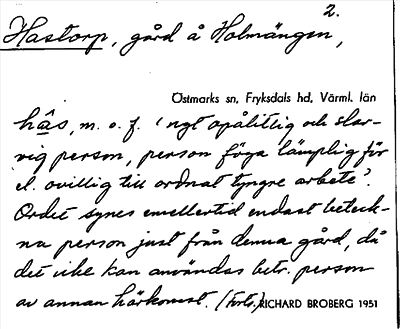 2.
Hastorp, gård å Holmängen,
Östmarks sn, Fryksdals hd, Värml. län
hâs, m. o. f. 'ngt opålitlig och slar-
vig person, person föga lämplig för
el. ovillig till ordnat tyngre arbete'.
Ordet synes emellertid endast beteck-
na person just från denna gård, då
det icke kan användas betr. person
av annan härkomst. (Forts.) RICHARD BROBERG 1951